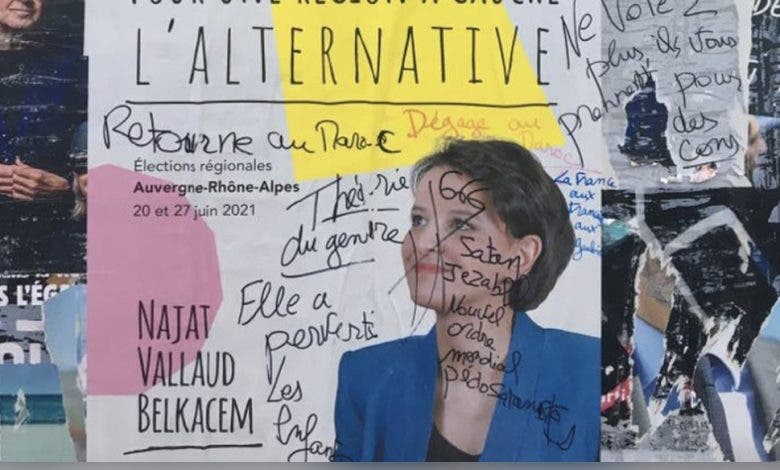 POUR UNE RÉGION À GAUCHE
L'ALTERNATIVE
Retourne au Maroc
Dégage au
Maroc
Ne Votez
plus ils vous
prennent pour
des
cons
Élections régionales
Auvergne-Rhône-Alpes
20 et 27 juin 2021
La France
aux
Théorie
du genre
666
Satan
Jezabel
Nouvel
ordre
mondial
pédosataniste
Elle a
perverti
Les
Enfant
NAJAT
VALLAUD
BELKACEM